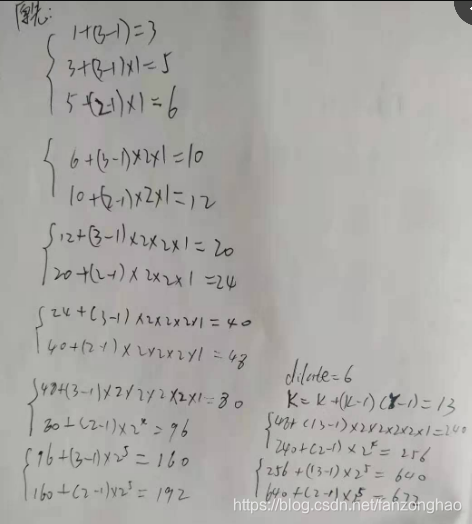 1+(3-1)=3
3+(3-1)×1=5
5+(2-1)×1=6
6+(3-1)×2×1=10
10+(2-1)×2×1=12
12+(3-1)×2×2×1=20
20+(2-1)×2×2×1=24
24+(3-1)×2×2×2×1=40
40+(2-1)×2×2×2×1=48
48+(3-1)×2×2×2×2×1=80
80+(2-1)×2⁴=96
96+(3-1)×2⁵=160
160+(2-1)×2⁵=192
dilate=6
K=K+(K-1)(r-1)=13
48+(13-1)×2×2×2×2×1=240
240+(2-1)×2⁴=256
256+(13-1)×2⁵=640
640+(2-1)×2⁵=672
https://blog.csdn.net/fanzonghao